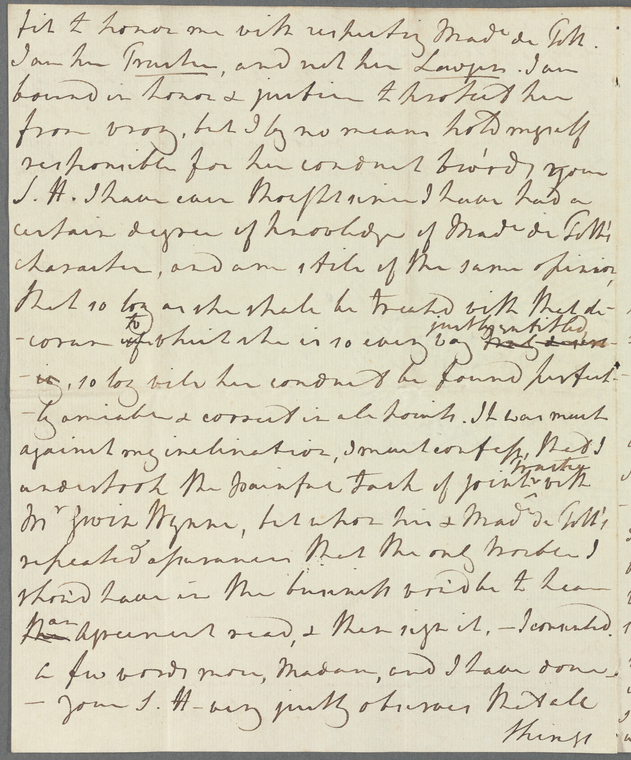 fit to honor me with respecting Made de Toll.
I am her Trustee, and not her Lawyer. I am
bound in honor & justice to protect her
from wrong, but I by no means hold myself
responsible for her conduct towards your
S. H. I have ever thought since I have had a
certain degree of knowledge of Made de Toll's
character, and am still of the same opinion,
that so long as she shall be treated with that de-
-corum to which she is so every way justly entitled,
so long will her conduct be found perfect-
-ly amiable & correct in all points. It was much
against my inclination, I must confess, that I
undertook the painful task of joint Trustee with
Mr Wynne, but upon his & Made de Toll's
repeated assurances that the only trouble I
shou'd have in the business wou'd be to hear
an Agreement read, & then sign it. - I consented.
a few words more, Madam, and I have done.
- your S. H - very justly observes that all
things